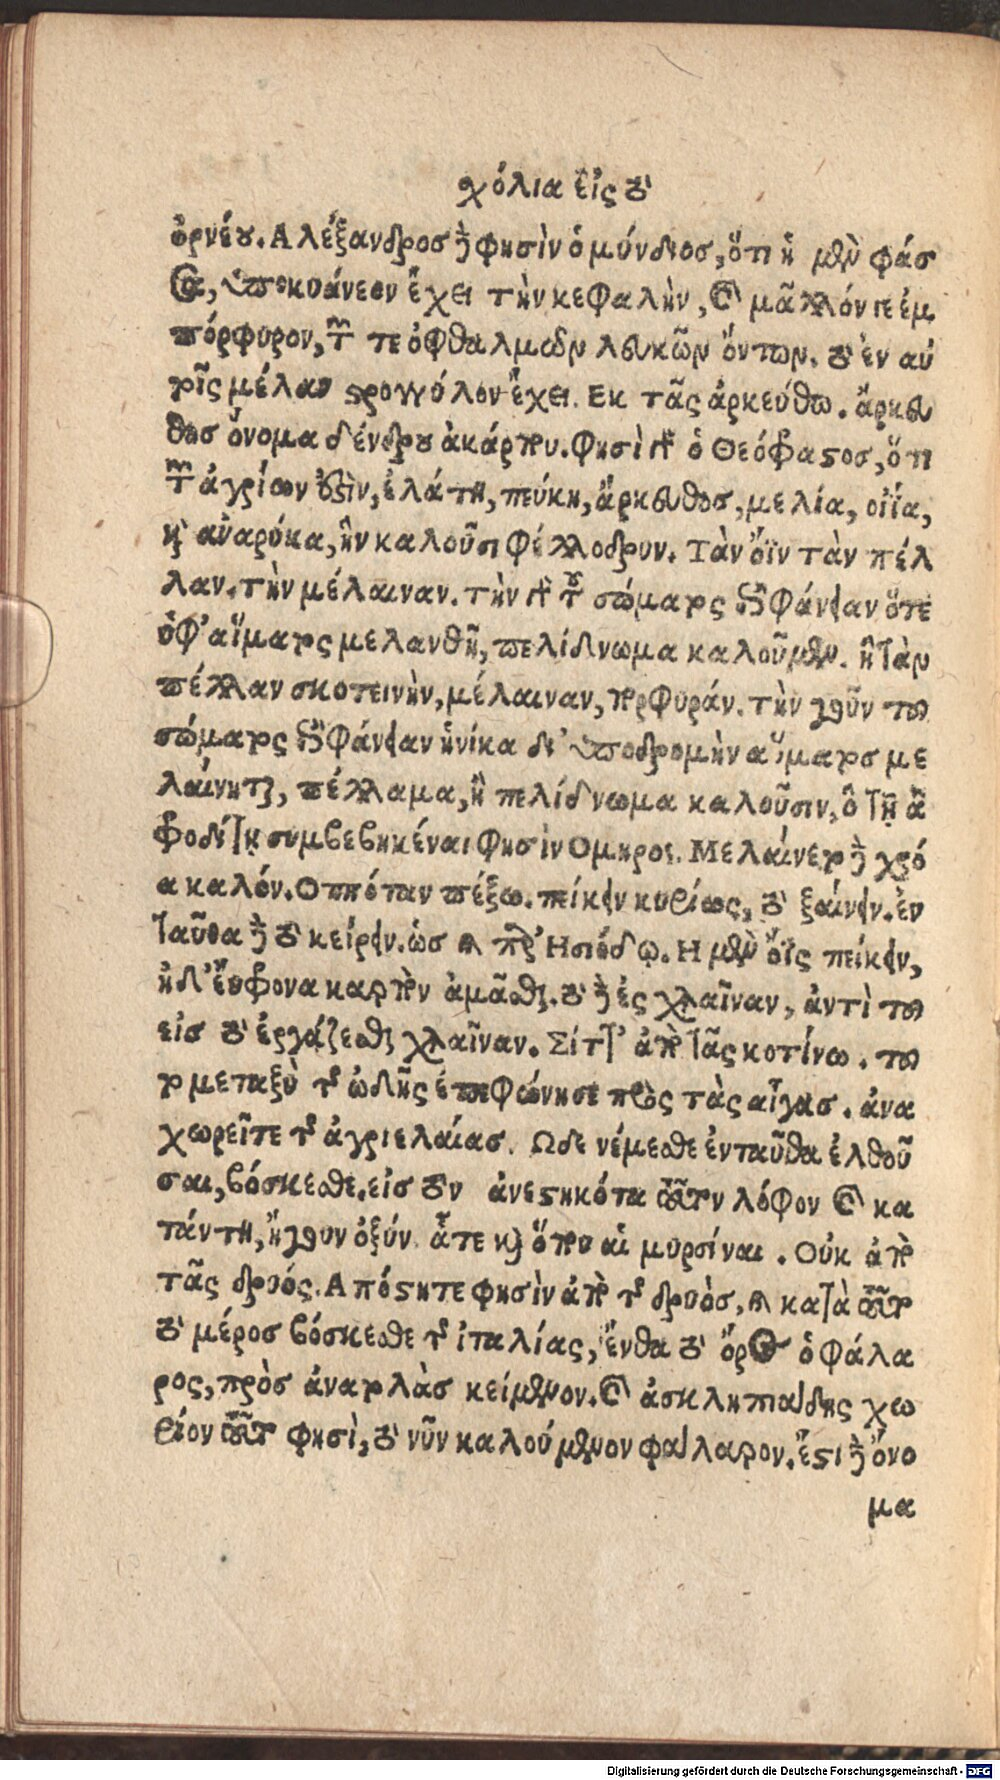 χόλια εἰς τὸ
ὀρνέου. Αλέξανδρος δὲ φησὶν ὁ μύνδιος, ὅτι ἡ μὲν φάσ
σα, ὑποκυάνεον ἔχει τὴν κεφαλὴν, καὶ μᾶλλόν γε ἐμ
πόρφυρον, τῶν τε ὀφθαλμῶν λευκῶν ὄντων. τὸ ἐν αὐ
τοῖς μέλαν στρογγύλον ἔχει. Εκ τᾶς ἀρκεύθω. ἄρκευ
θος ὄνομα δένδρου ἀκάρπου. Φησὶ γὰρ ὁ Θεόφραστος, ὅτι
τῶν ἀγρίων ἐστὶν, ἐλάτη, πεύκη, ἄρκευθος, μελία, οἰΐα,
καὶ ἀναρύκα, ἣν καλοῦσι φέλλοδρυν. Τὰν ὄϊν τὰν πέλ
λαν. τὴν μέλαιναν. τὴν γὰρ τοῦ σώματος ἐπιφάνειαν ὅτε
ὑφ' αἵματος μελανθῇ, πελίδνωμα καλοῦμεν. ἢ τὰν
πέλλαν σκοτεινὴν, μέλαιναν, πορφυράν. τὴν γοῦν τοῦ
σώματος ἐπιφάνειαν ἡνίκα δι' ὑποδρομὴν αἵματος με
λαίνηται, πέλλαμα, ἢ πελίδνωμα καλοῦσιν, ὃ τῇ ἀ
φροδίτῃ συμβεβηκέναι φησὶν Ομηρος. Μελαίνετο δὲ χρό
α καλόν. Οππόταν πέξω. πείκειν κυρίως, τὸ ξαίνειν. ἐν
ταῦθα δὲ τὸ κείρειν. ὡς καὶ παρ' Ησιόδῳ. Η μὲν ὄϊς πείκειν,
ἠδ' ἔυφρονα καρπὸν ἀμᾶσθαι. τὸ δὲ ἐς χλαῖναν, ἀντὶ τοῦ
εἰς τὸ ἐργάζεσθαι χλαῖναν. Σίττ' ἀπὸ τᾶς κοτίνω. τοῦ
το μεταξὺ τῆς ὠδῆς ἐπεφώνησε πρὸς τὰς αἶγας. ἀνα
χωρεῖτε τῆς ἀγριελαίας. Ωδε νέμεσθε ἐνταῦθα ἐλθοῦ
σαι, βόσκεσθε. εἰς τὸν ἀνεστηκότα τοῦτον λόφον καὶ κα
τάντη, ἤγουν ὀξύν. ἅτε καὶ ὅπου αἱ μυρσίναι. Οὐκ ἀπὸ
τᾶς δρυός. Απόστητε φησὶν ἀπὸ τῆς δρυὸς, καὶ κατὰ τοῦτο
τὸ μέρος βόσκεσθε τῆς ἰταλίας, ἔνθα τὸ ὄρος ὁ φάλα
ρος, πρὸς ἀνατολὰς κείμενον. καὶ ἀσκληπιάδης χω
ρίον τοῦτο φησὶ, τὸ νῦν καλούμενον φάλαρον. ἔστι δὲ ὄνο
μα
Digitalisierung gefördert durch die Deutsche Forschungsgemeinschaft - DFG